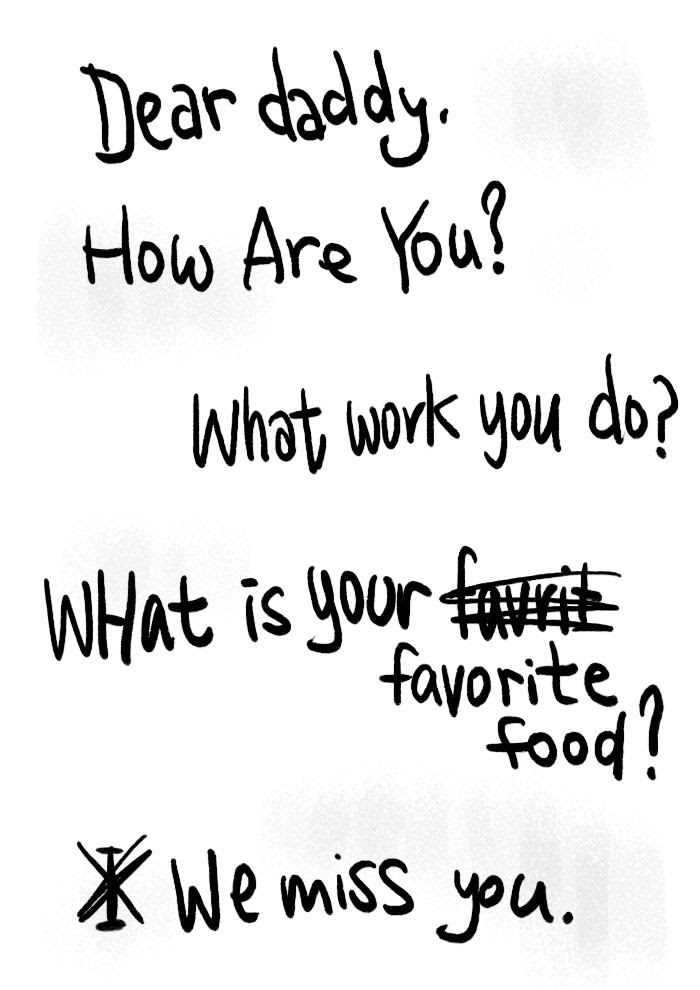 Dear daddy.
How Are You?
What work you do?
WHat is your favrit
favorite
food?
I We miss you.